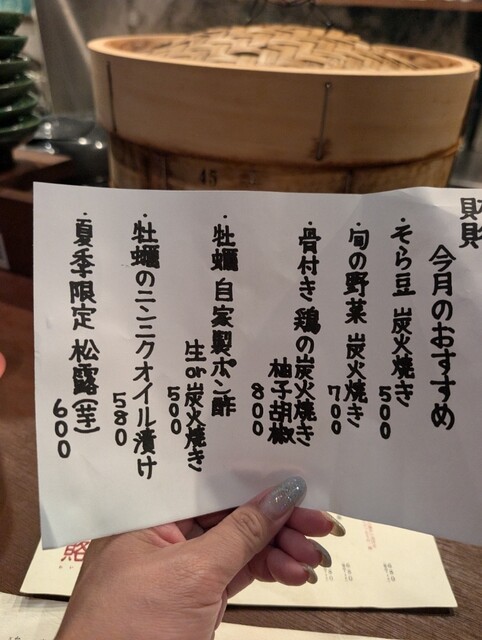 財
財
今月のおすすめ
・そら豆 炭火焼き
500
・旬の野菜 炭火焼き
700
・骨付き鶏の炭火焼き
柚子胡椒
800
・牡蠣 自家製ポン酢
生or炭火焼き
500
・牡蠣のニンニクオイル漬け
580
・夏季限定 松露(芋)
600
45